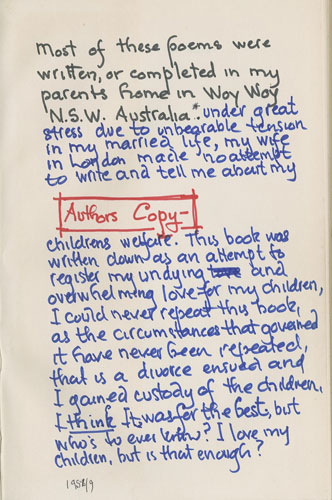 Most of these poems were
written, or completed in my
parents home in Woy Woy
N.S.W. Australia.* under great
stress due to unbearable tension
in my married life, my wife
in London made no attempt
to write and tell me about my
Authors Copy-
childrens welfare. This book was
written down as an attempt to
register my undying and
overwhelming love for my children,
I could never repeat this book,
as the circumstances that governed
it have never been repeated,
that is a divorce ensued and
I gained custody of the children,
I think It was for the best, but
who's to ever know? I love my
children, but is that enough?